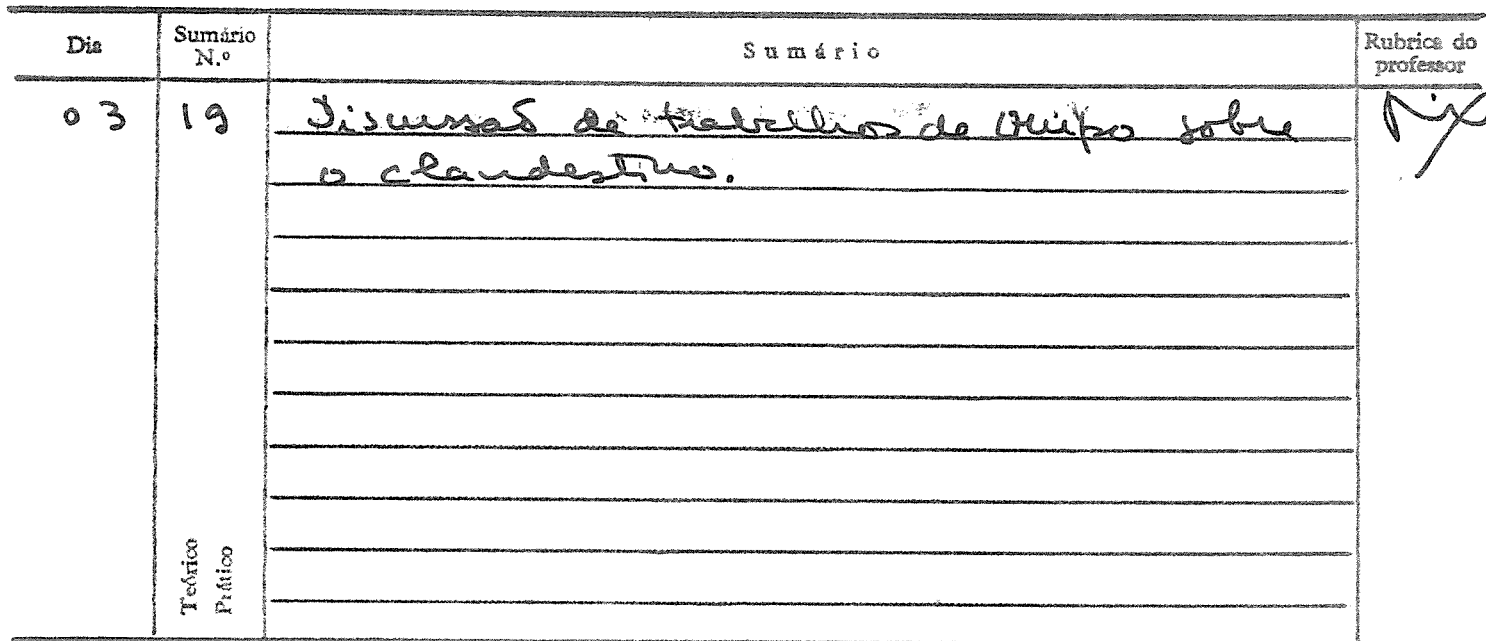 Dia
Sumário N.º
Sumário
Rubrica do professor
03
19
Discussão de trabalhos de Grupo sobre
o clandestino.
Teórico
Prático